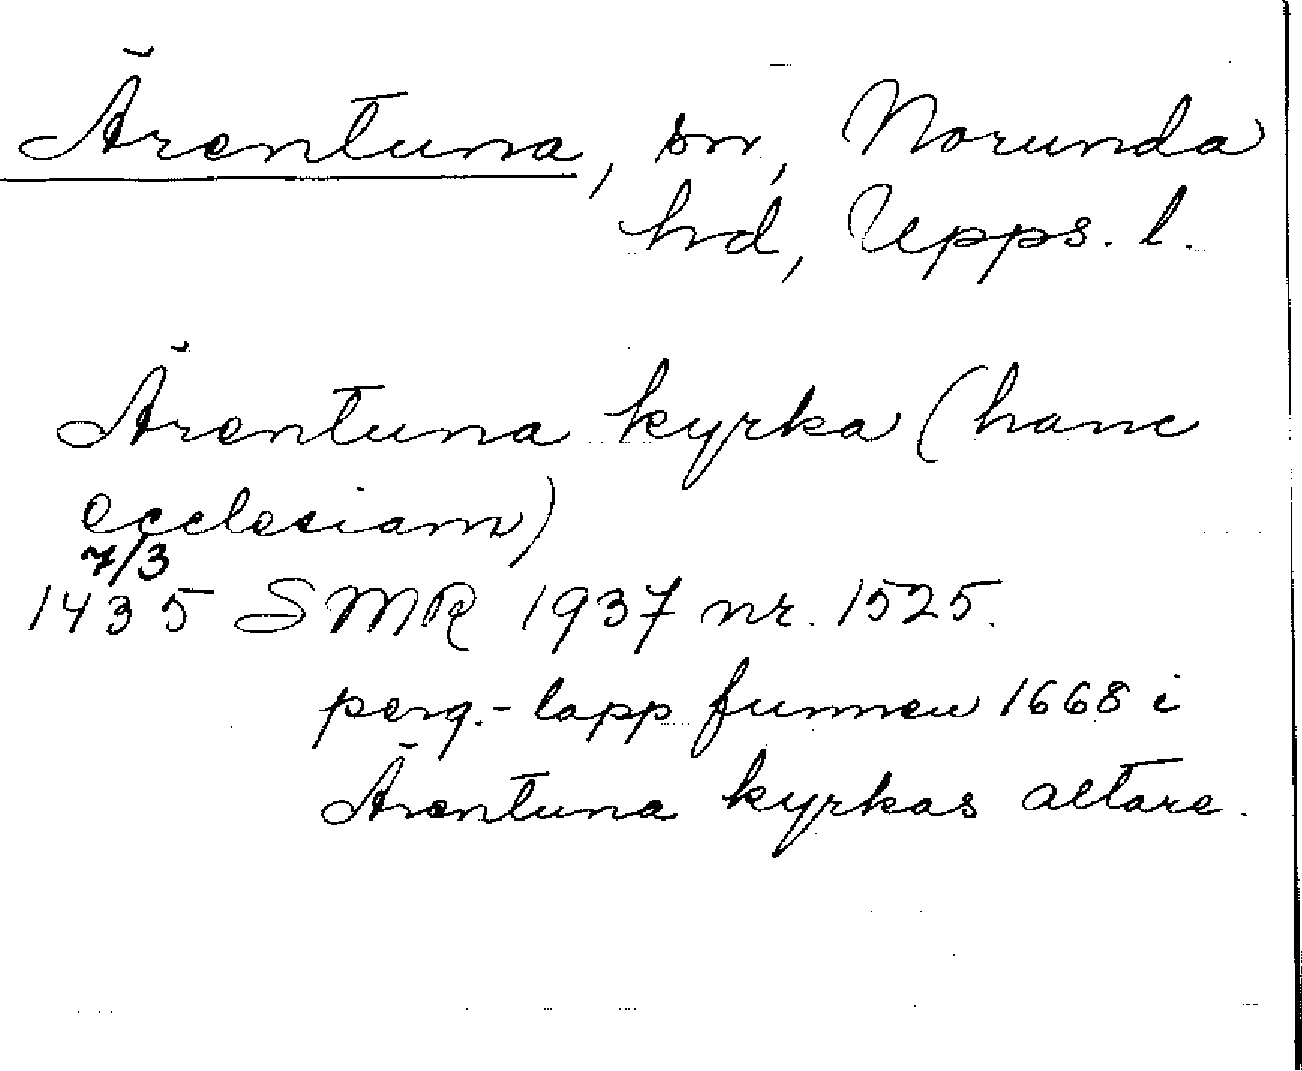 Ärentuna, sn, Norunda
hd, Upps. l.
Ärentuna kyrka (hanc
ecclesiam)
7/3
1435 SMR 1937 nr. 1525.
perg.-lapp funnen 1668 i
Ärentuna kyrkas altare.